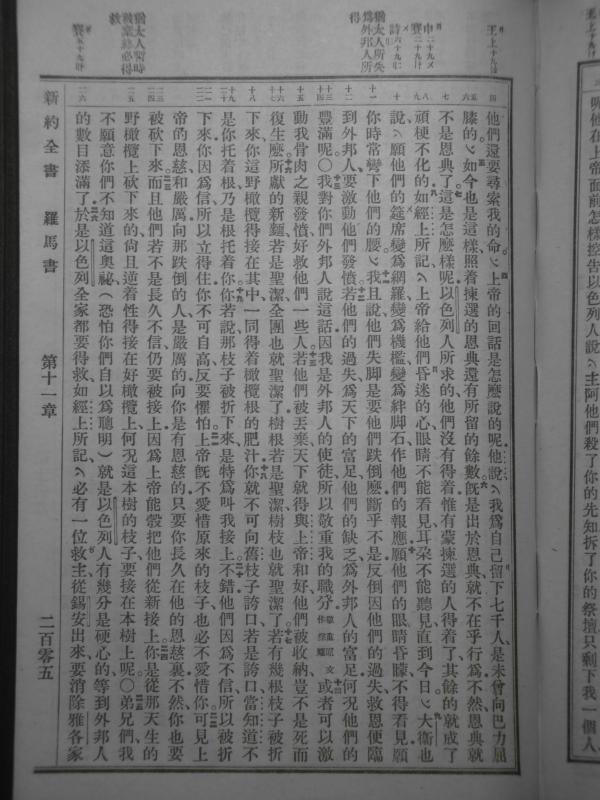 王上十九
賽二十九
申二十九
詩六十九
猶太人所失爲外邦人所得
猶太人暫時被棄終必得救
賽五十九
呢他在上帝面前怎樣控告以色列人說主阿他們殺了你的先知拆了你的祭壇只剩下我一個人
他們還要尋索我的命上帝的回話是怎麼說的呢他說我爲自己留下七千人是未曾向巴力屈
膝的如今也是這樣照着揀選的恩典還有所留的餘數旣是出於恩典就不在乎行爲不然恩典就
不是恩典了這是怎麼樣呢以色列人所求的他們沒有得着惟有蒙揀選的人得着了其餘的就成了
頑梗不化的如經上所記上帝給他們昏迷的心眼睛不能看見耳朶不能聽見直到今日大衞也
說願他們的筵席變爲網羅變爲機檻變爲絆脚石作他們的報應願他們的眼睛昏矇不得看見願
你時常彎下他們的腰我且說他們失脚是要他們跌倒麼斷乎不是反倒因他們的過失救恩便臨
到外邦人要激動他們發憤若他們的過失爲天下的富足他們的缺乏爲外邦人的富足何况他們的
豐滿呢〇我對你們外邦人說這話因我是外邦人的使徒所以敬重我的職分或者可以激
動我骨肉之親發憤好救他們一些人若他們被丟棄天下就得與上帝和好他們被收納豈不是死而
復生麼所獻的新麵若是聖潔全團也就聖潔了樹根若是聖潔樹枝也就聖潔了若有幾根枝子被折
下來你這野橄欖得接在其中一同得着橄欖根的肥汁你就不可向舊枝子誇口若是誇口當知道不
是你托着根乃是根托着你你若說那枝子被折下來是特爲叫我接上不錯他們因爲不信所以被折
下來你因爲信所以立得住你不可自高反要懼怕上帝旣不愛惜原來的枝子也必不愛惜你可見上
帝的恩慈和嚴厲向那跌倒的人是嚴厲的向你是有恩慈的只要你長久在他的恩慈裏不然你也要
被砍下來而且他們若不是長久不信仍要被接上因爲上帝能彀把他們從新接上你是從那天生的
野橄欖上砍下來的尙且逆着性得接在好橄欖上何况這本樹的枝子要接在本樹上呢〇弟兄們我
不願意你們不知道這奧祕（恐怕你們自以爲聰明）就是以色列人有幾分是硬心的等到外邦人
的數目添滿了於是以色列全家都要得救如經上所記必有一位救主從錫安出來要消除雅各家
新約全書　羅馬書　第十一章　二百零五